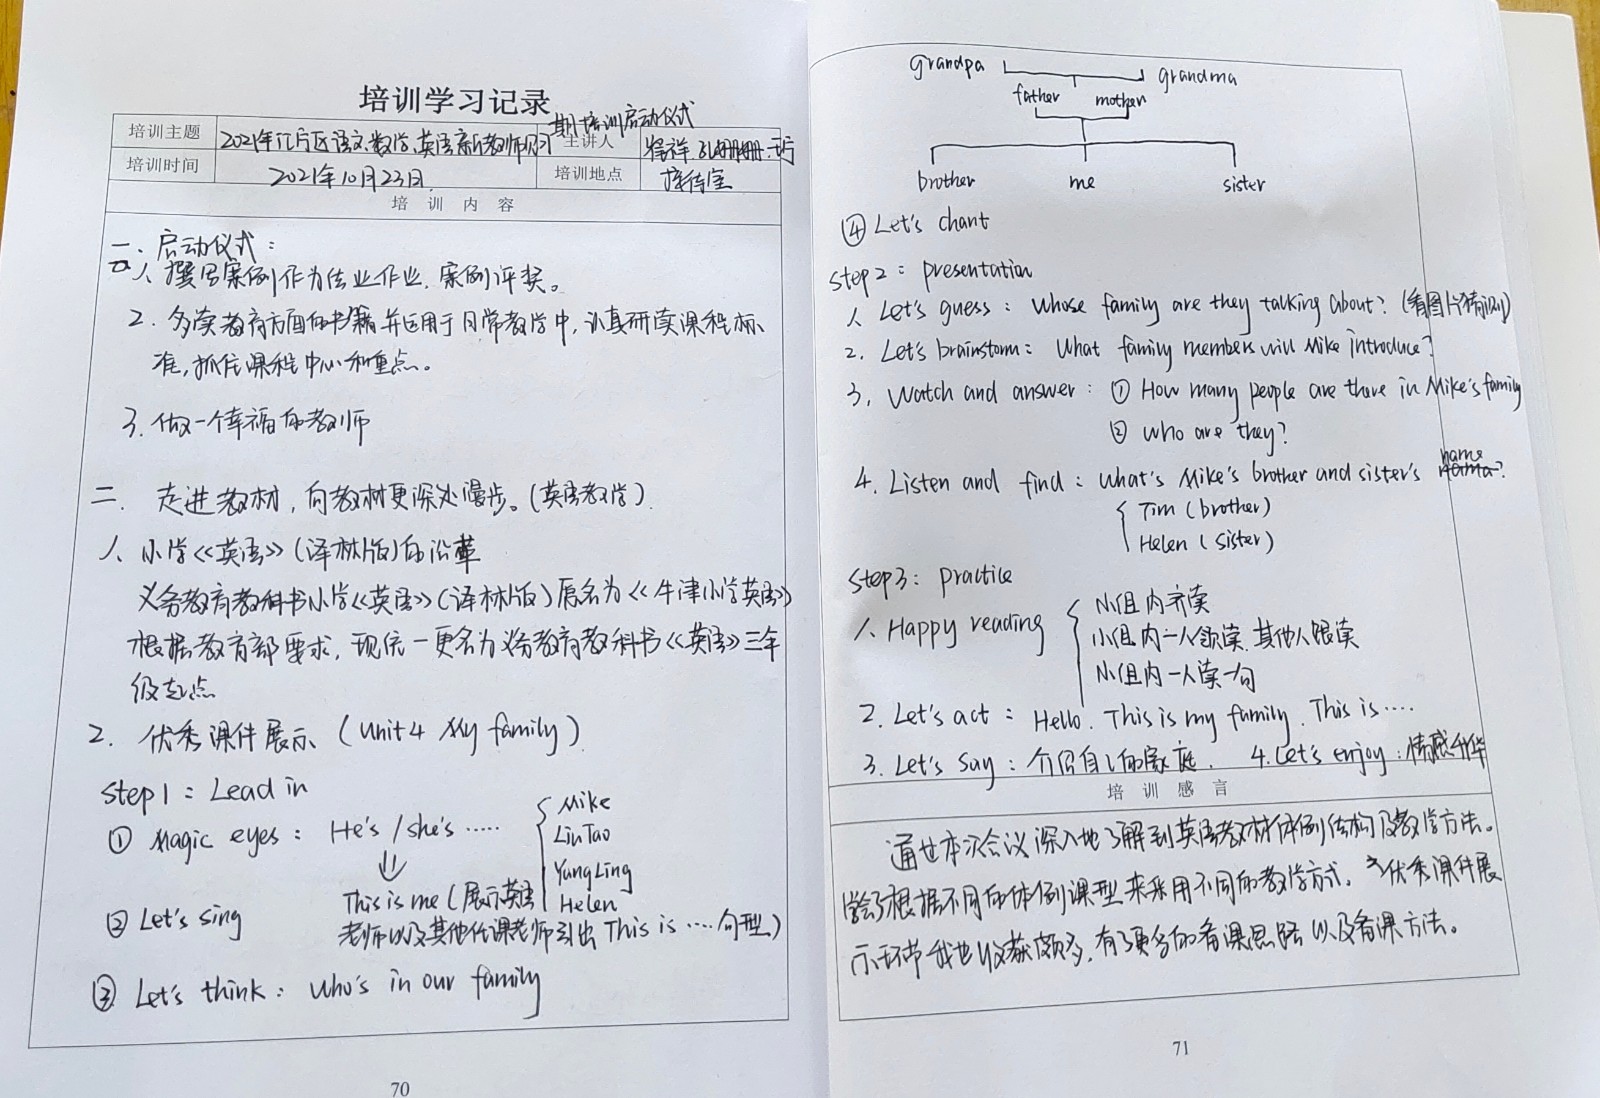 培训学习记录
培训主题 2021年江片区语文、数学、英语新教师见习期培训启动仪式 主讲人
培训时间 2021年10月23日. 培训地点 接待室
培 训 内 容
一、启动仪式：
1、撰写案例作为结业作业. 案例评奖。
2. 多读教育方面的书籍并运用于日常教学中, 认真研读课程标
准, 抓住课程中心和重点。
3. 做一个幸福的教师
二. 走进教材, 向教材更深处漫步。(英语教学).
1、小学《英语》(译林版)的沿革
义务教育教科书小学《英语》(译林版)原名为《牛津小学英语》
根据教育部要求, 现统一更名为义务教育教科书《英语》三年
级起点
2. 优秀课件展示 (Unit4 My family)
step1: Lead in
① Magic eyes: He's / she's ..... Mike
LiuTao
YangLing
Helen
This is me (展示英语
老师以及其他任课老师引出 This is .... 句型)
② Let's sing
③ Let's think: Who's in our family
70
Grandpa grandma
father mother
brother me sister
④ Let's chant
step2: presentation
1、Let's guess: Whose family are they talking about? (看图片猜识别)
2. Let's brainstorm: What family members will Mike introduce?
3, Watch and answer: ① How many people are there in Mike's family
② who are they?
4. Listen and find: What's Mike's brother and sister's name?
Tim (brother)
Helen (sister)
step3: practice
1、Happy reading 小组内齐读
小组内一人领读, 其他人跟读
小组内一人读一句
2. Let's act: Hello. This is my family. This is ....
3. Let's say: 介绍自己的家庭. 4. Let's enjoy: 情感升华
培 训 感 言
通过本次会议深入地了解到英语教材体例结构及教学方法。
学会了根据不同的体例课型来采用不同的教学方式. 优秀课件展
示环节我也收获颇多, 有了更多的备课思路以及备课方法。
71